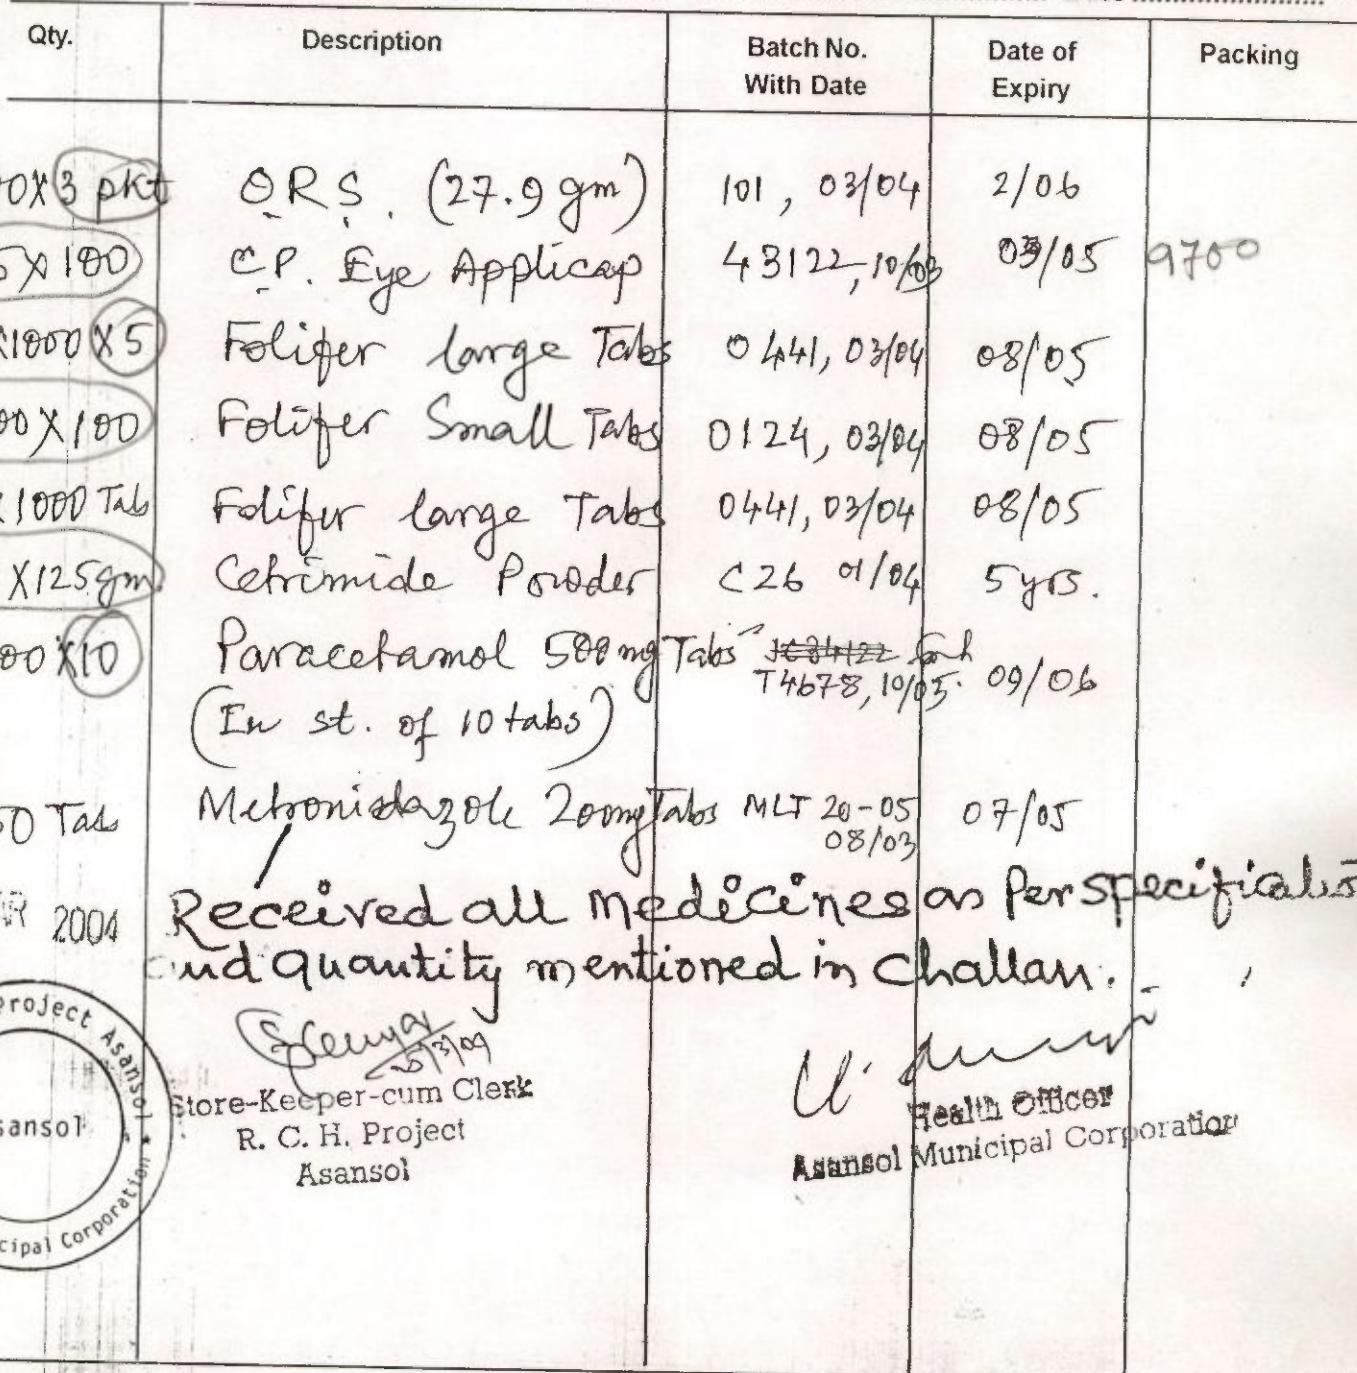 Qty. Description Batch No. With Date Date of Expiry Packing
0X3 pkt O.R.S. (27.9 gm) 101, 03/04 2/06
5X100 C.P. Eye Applicap 43122, 10/03 03/05 9700
X1000X5 Folifer large Tabs 0441, 03/04 08/05
00X100 Folifer Small Tabs 0124, 03/04 08/05
X1000 Tab Folifer large Tabs 0441, 03/04 08/05
X125gm Cetrimide Powder C26 01/04 5 yrs.
00X10 Paracetamol 500mg Tabs
T4678, 10/03. 09/06
(In st. of 10 tabs)
50 Tab Metronidazole 200mg Tabs MLT 20-05 07/05
08/03
Received all medicines as Per specificatio
2004 and quantity mentioned in challan.
Project Asansol
sansol
cipal Corporation
Store-Keeper-cum Clerk
R. C. H. Project
Asansol
Health Officer
Asansol Municipal Corporation